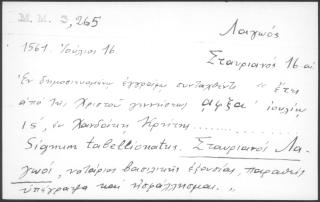 M. M. 3, 265
Λαγωός
1561 Ιούλιος 16
Σταυριανός 16 αἰ
Ἐν δημοσιευομένῳ ἐγγράφῳ συνταχθέντι "ἔτει
ἀπὸ τῆς Χριστοῦ γεννήσεως αφξα' ἰουλίῳ
ις', ἐν Χανδάκῃ Κρήτης
Signum tabellionatus. Σταυριανὸς Λα-
γωός, νοτάριος βασιλικῆς ἐξουσίας, παραθεὶς
ὑπέγραψα καὶ ἠσφάλησμαι."